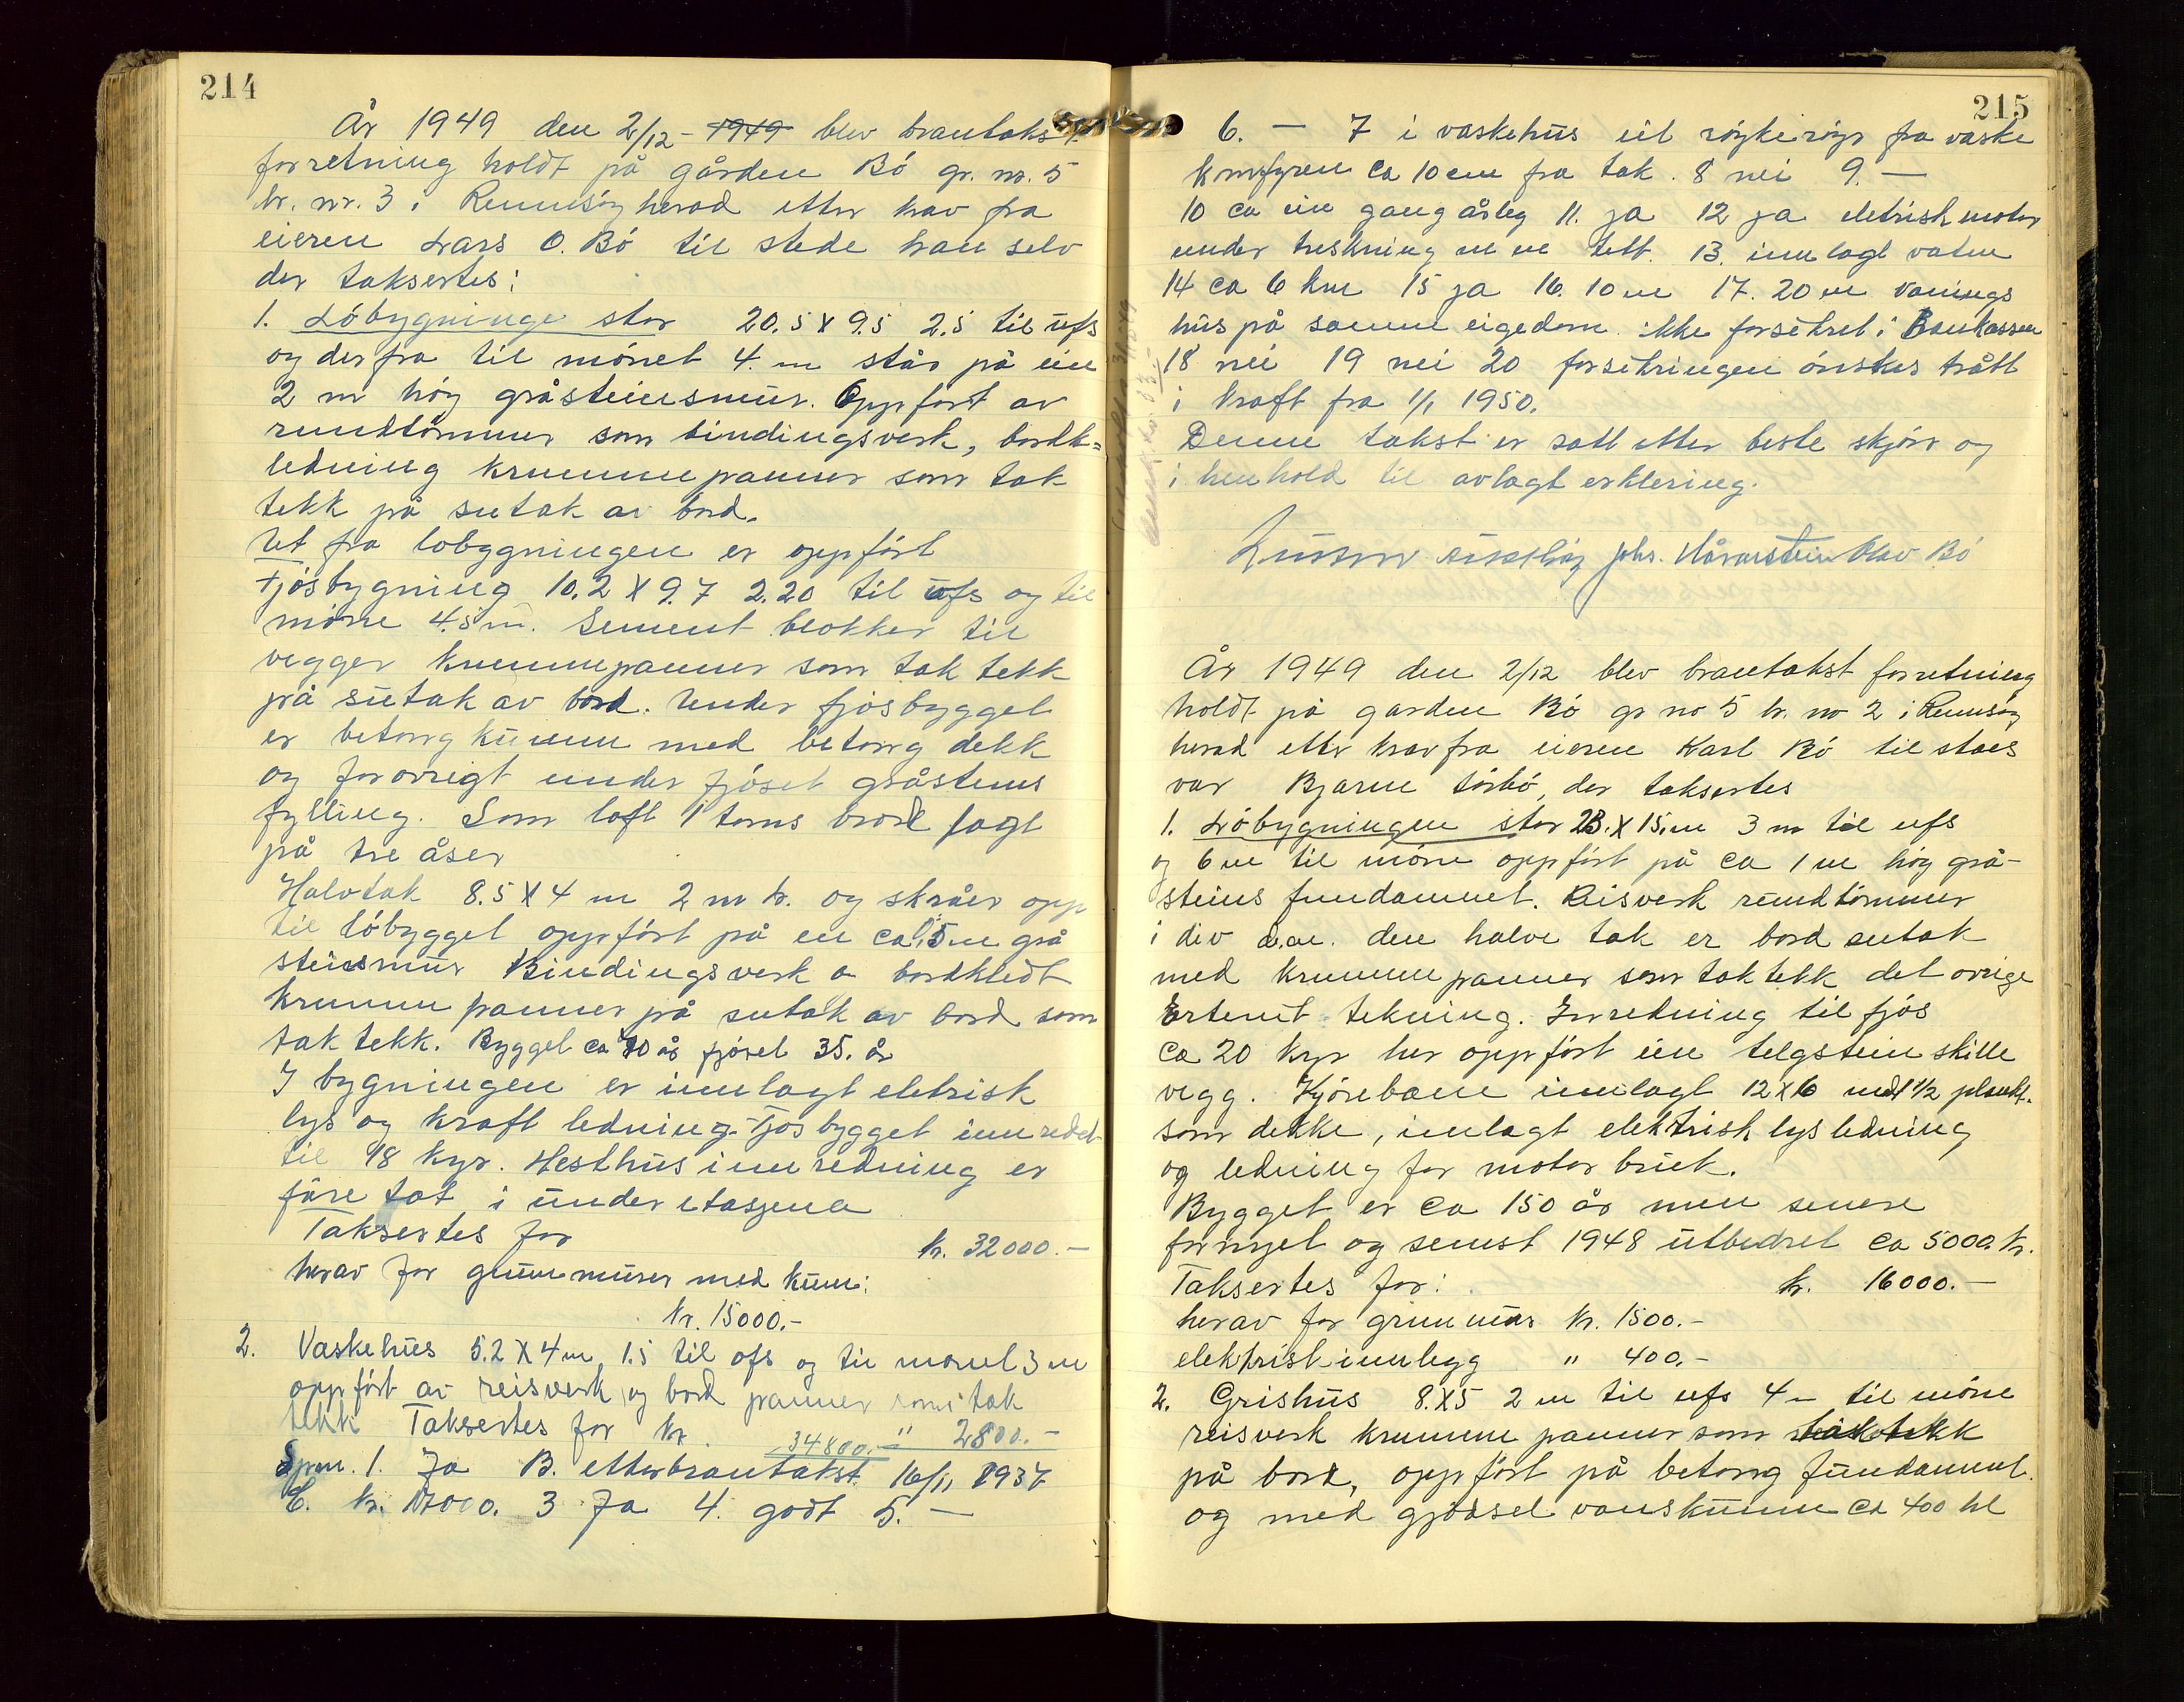 214
År 1949 den 2/12 - 1949 blev brantakst
forretning holdt på gården Bö gr. nr. 5
br. nr. 3 i Rennesöy herad etter krav fra
eieren Lars O. Bö til stede han selv
der taksertes:
1. Löbygninge stor 20.5 X 9.5 2.5 til ufs
og derfra til mönet 4. m står på ein
2 m höy gråsteinsmur. Oppfört av
rundtömmer som bindingsverk, bordk=
ledning krumme panner som tak
tekk på sutak av bord.
Ut fra löbyggningen er oppfört
Fjösbygning 10.2 X 9.7 2.20 til ufs og til
möne 4.5 m. Sement blokker til
vegger krummepanner som tak tekk
på sutak av bord. Under fjösbygget
er betong kumm med betong dekk
og forövrigt under fjöset gråsteins
fylling. Som loft 1 toms bord lagt
på tre åser
Halvtak 8.5 X 4 m 2 m h. og skråer opp
til löbygget oppfört på en ca 1.5 m grå
steinsmur Bindingsverk o bordkledt
krumme panner på sutak av bord som
tak tekk. Bygget ca 90 år fjöset 35. år
I bygningen er innlagt eletrisk
lys og kraft ledning. Fjösbygget innredet
til 18 kyr. Hesthus innredning er
före tat i under etasjena
Taksertes for kr. 32000.-
herav for grunnmurer med kum:
kr. 15000.-
2. Vaskehus 5.2 X 4 m 1.5 til ofs og til mönet 3 m
oppfört av reisverk og bord panner som tak
tekk Taksertes for kr. 34800.- " 2800.-
Spm. 1. Ja B. etterbrantakst 16/11 1937
C. kr. 17000. 3 Ja 4. godt 5. -
215
6. - 7 i vaskehus eit röykerör fra vaske
komfyren ca 10 cm fra tak. 8 nei 9. -
10 ca ein gang årleg 11. ja 12 ja eletrisk motor
under treskning m m tett. 13. innlagt vatn
14 ca 6 km 15 ja 16. 10 m 17. 20 m vonings
hus på samme eigedom. ikke forsikret i Brankassen
18 nei 19 nei 20 forsikringen önskes trått
i kraft fra 1/1 1950.
Denne takst er satt etter beste skjön og
i henhold til avlagt erklering.
Johs. Hårarstein Olav Bö
År 1949 den 2/12 blev brantakst forretning
holdt på garden Bö gr no 5 br. no 2 i Rennesöy
herad etter krav fra eieren Karl Bö til staes
var Bjarne Törbö, der taksertes
1. Löbygningen stor 23. X 15. m 3 m til ufs
og 6 m til möne oppfört på ca 1 m höy grå-
steins fundament. Reisverk rundtömmer
i div dim. den halve tak er bord sutak
med krumme panner som tak tekk det övrige
Eternit tekning. Innredning til fjös
ca 20 kyr her oppfört ein telgstein skille
vegg. Kjörebane innlagt 12 X 6 med 1 1/2 plankt.
som dekke, innlagt elektrisk lys ledning
og ledning for motor bruk.
Bygget er ca 150 år men senere
fornyet og senest 1948 utbedret ca 5000 kr.
Taksertes for: kr. 16000.-
herav for grunnmur kr. 1500.-
elektrist innlegg " 400.-
2. Grishus 8. X 5 2 m til ufs 4 m til möne
reisverk krumme panner som taktekk
på bord, oppfört på betong fundament.
og med gjödsel vanskumm ca 400 hl